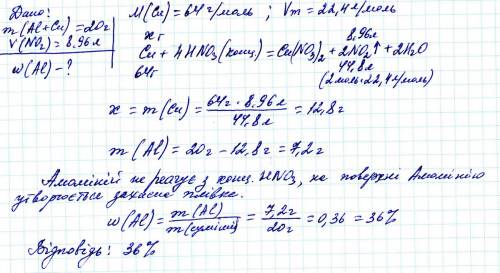 Дано:
m(Al+Cu)=20г
V(NO₂)=8,96л
w(Al)-?
M(Cu)=64г/моль ; Vm=22,4л/моль
xг 8,96л
Cu + 4HNO₃(конц)=Cu(NO₃)₂+2NO₂↑+2H₂O
64г 44,8л
(2моль·22,4л/моль)
x = m(Cu) = 64г·8,96л / 44,8л = 12,8г
m(Al) = 20г - 12,8г = 7,2г
Алюміній не реагує з конц. HNO₃, на поверхні Алюмінію
утворюється захисна плівка.
w(Al) = m(Al) / m(суміші) = 7,2г / 20г = 0,36 = 36%
Відповідь: 36%